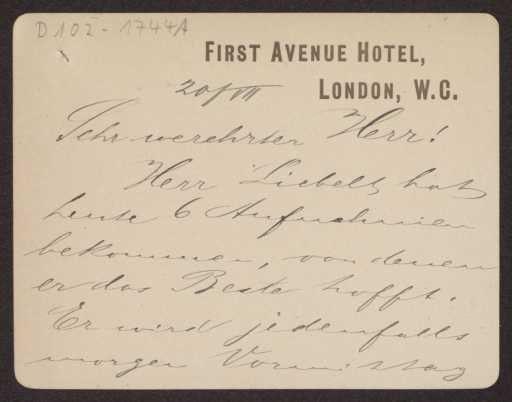 D 102 - 1744A
FIRST AVENUE HOTEL,
LONDON, W.C.
20/VII
Sehr verehrter Herr!
Herr Liebelt hat
heute 6 Aufnahmen
bekommen, von denen
er das Beste hofft.
Er wird jedenfalls
morgen Vormittag